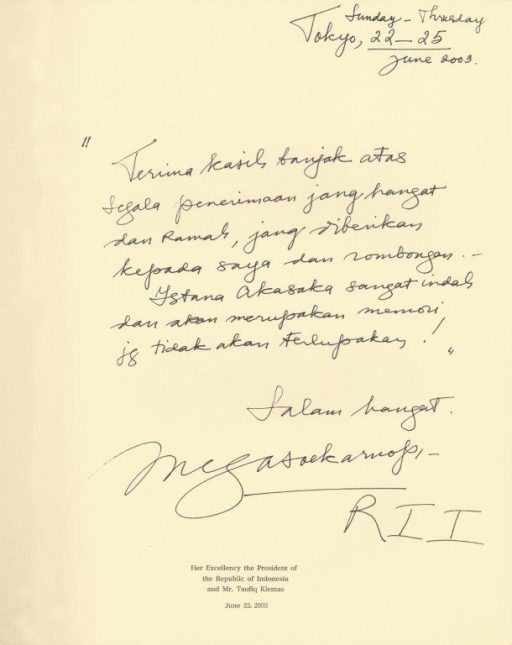 Sunday - Thursday
Tokyo, 22 - 25
June 2003.
"
Terima kasih banjak atas
segala penerimaan jang hangat
dan Ramah, jang diberikan
kepada saya dan rombongan. -
Istana Akasaka sangat indah
dan akan merupakan memori
jg tidak akan terlupakan !
"
Salam hangat.
Megasoekarnoptr,-
RII
Her Excellency the President of
the Republic of Indonesia
and Mr. Taufiq Kiemas
June 22, 2003